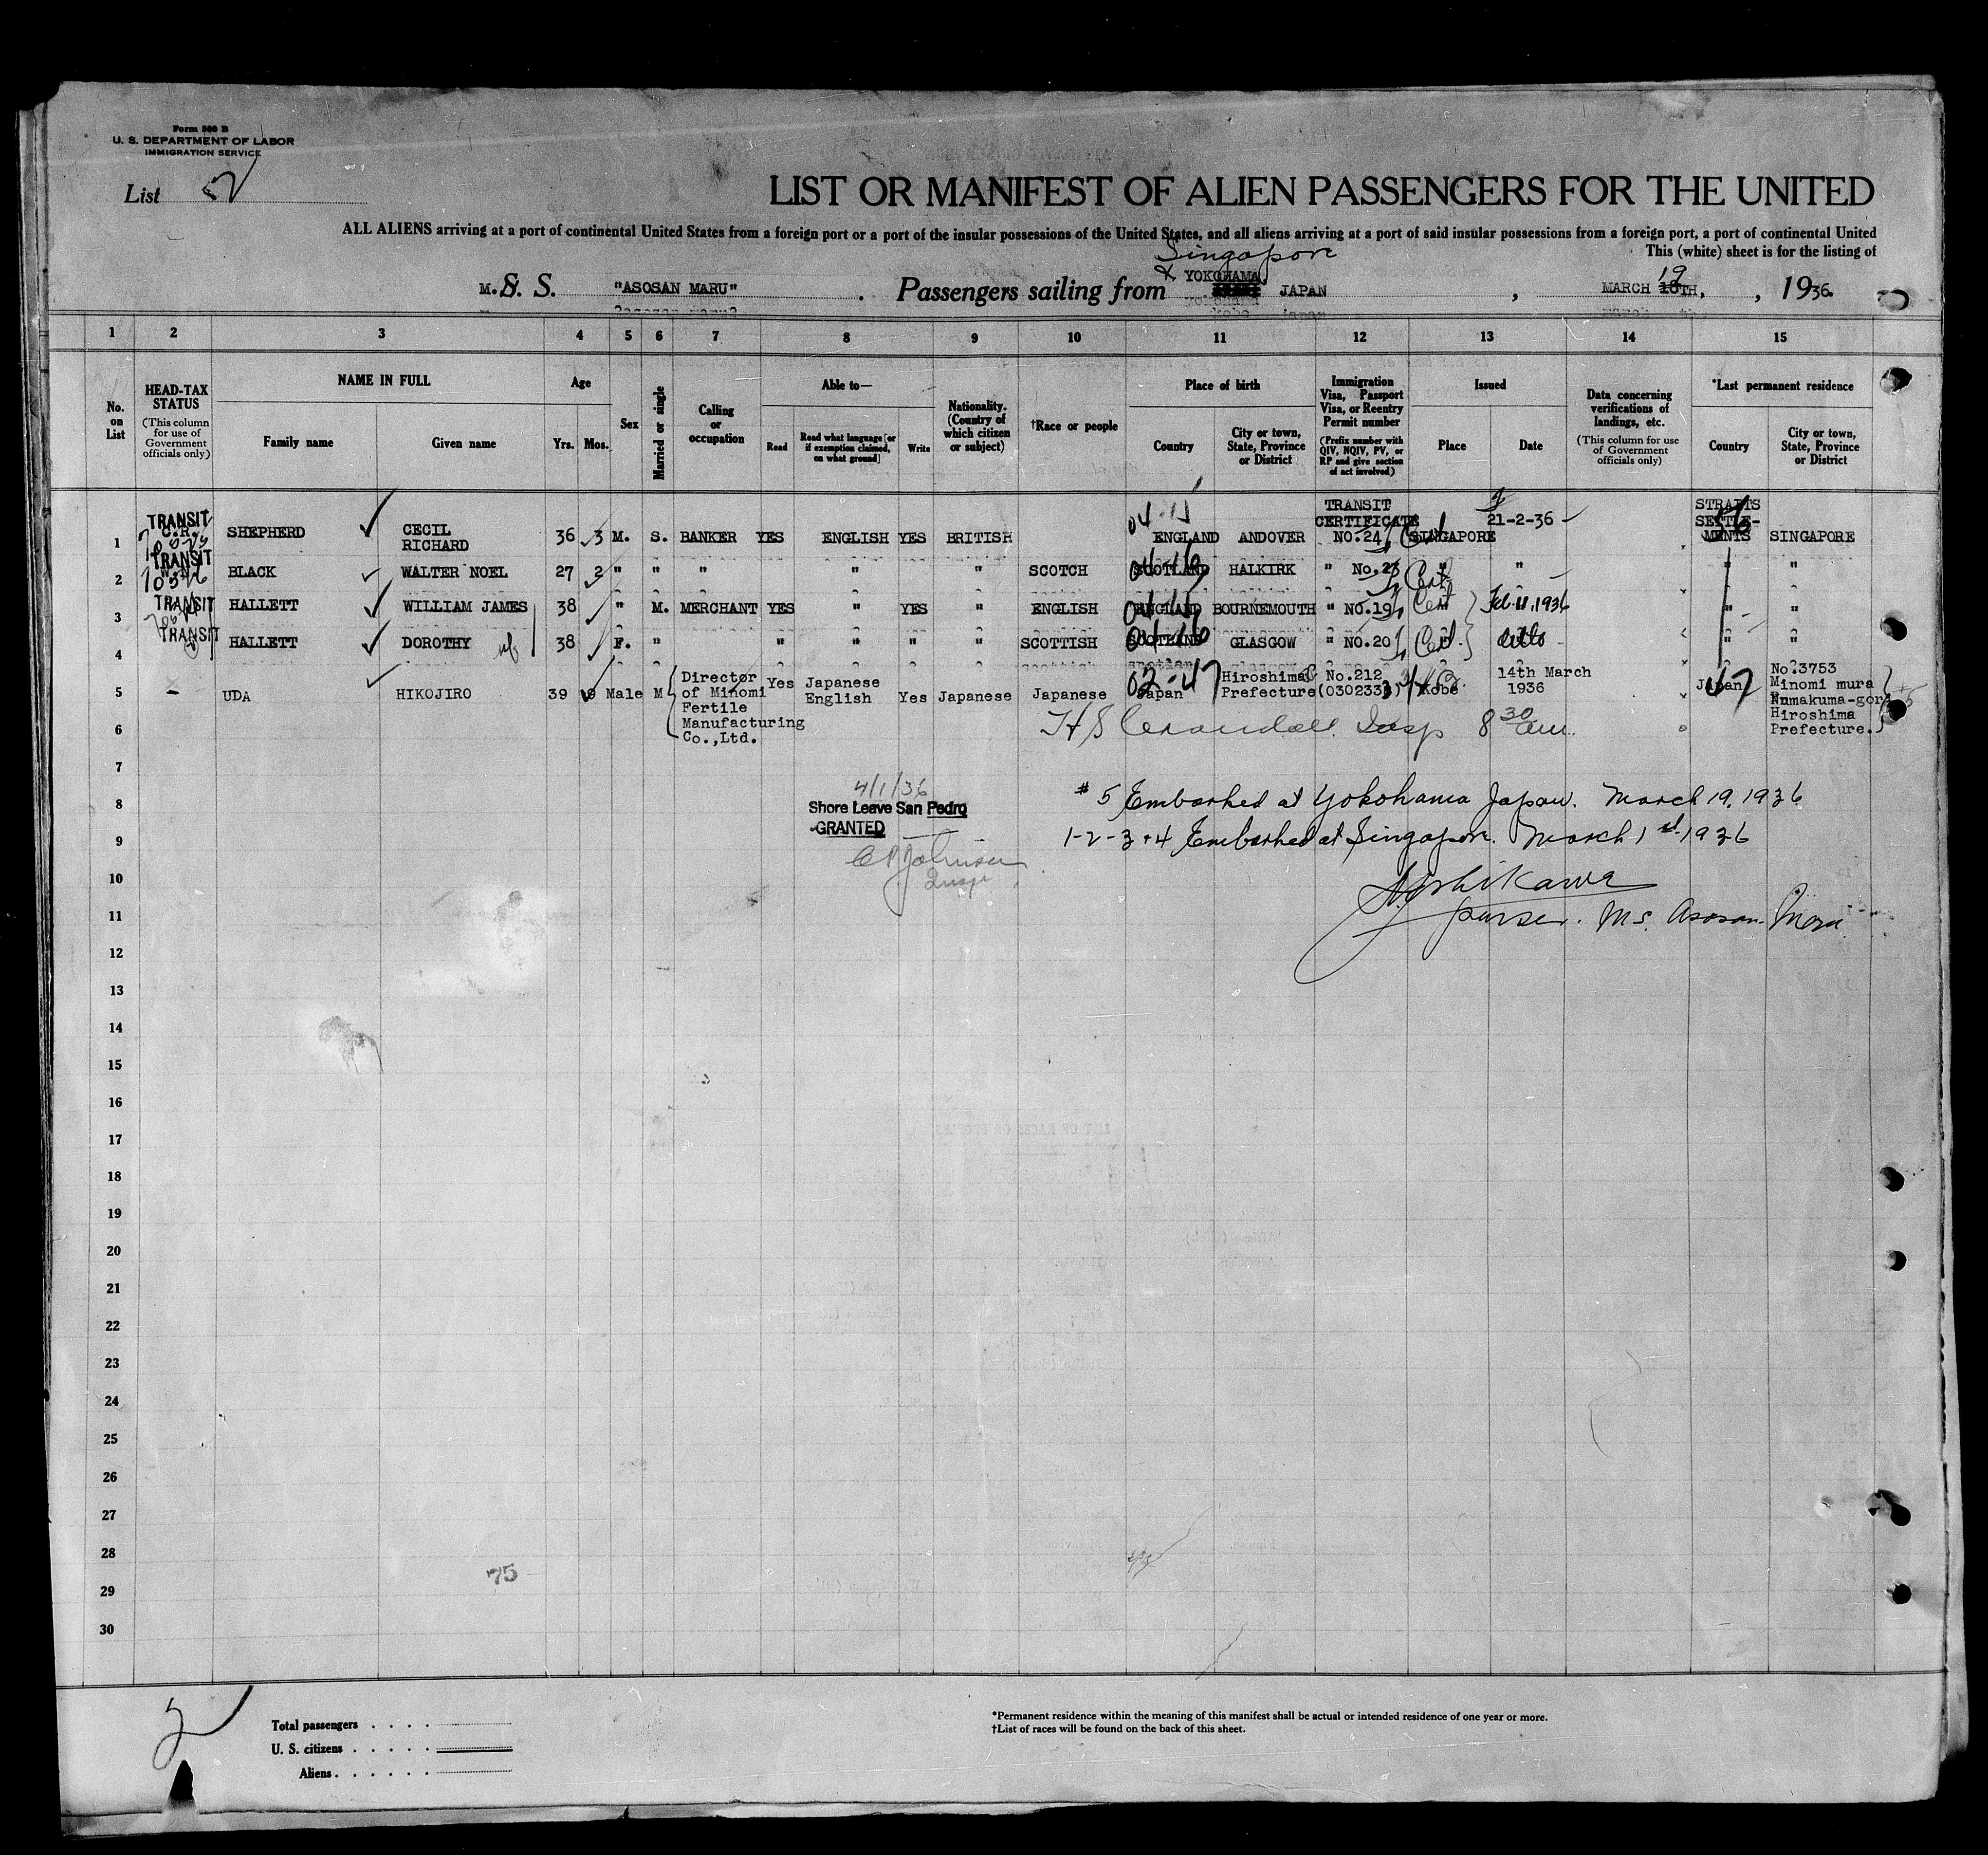 Form 500 B
U. S. DEPARTMENT OF LABOR
IMMIGRATION SERVICE
List 2
LIST OR MANIFEST OF ALIEN PASSENGERS FOR THE UNITED
ALL ALIENS arriving at a port of continental United States from a foreign port or a port of the insular possessions of the United States, and all aliens arriving at a port of said insular possessions from a foreign port, a port of continental United
This (white) sheet is for the listing of
Singapore
M.S. S. "ASOSAN MARU" Passengers sailing from & YOKOHAMA, JAPAN, MARCH 19TH, 1936
1 2 3 4 5 6 7 8 9 10 11 12 13 14 15
No. on List
HEAD-TAX STATUS
(This column for use of Government officials only)
NAME IN FULL
Family name
Given name
Age
Yrs.
Mos.
Sex
Married or single
Calling or occupation
Able to—
Read
Read what language [or if exemption claimed, on what ground]
Write
Nationality. (Country of which citizen or subject)
†Race or people
Place of birth
Country
City or town, State, Province or District
Immigration Visa, Passport Visa, or Reentry Permit number
(Prefix number with QIV, NQIV, PV, or RP and give section of act involved)
Issued
Place
Date
Data concerning verifications of landings, etc.
(This column for use of Government officials only)
*Last permanent residence
Country
City or town, State, Province or District
1 TRANSIT SHEPHERD CECIL RICHARD 36 3 M. S. BANKER YES ENGLISH YES BRITISH ENGLAND ANDOVER TRANSIT CERTIFICATE NO.24 SINGAPORE 21-2-36 STRAITS SETTLE-MENTS SINGAPORE
04-11
56
2 TRANSIT BLACK WALTER NOEL 27 2 " " " " " " " SCOTCH SCOTLAND HALKIRK " No. Cert " " " "
3 TRANSIT HALLETT WILLIAM JAMES 38 " M. MERCHANT YES " YES " ENGLISH ENGLAND BOURNEMOUTH " NO.19 Cert Feb. 11, 1936 " "
4 TRANSIT HALLETT DOROTHY wf 38 F. " " " " " SCOTTISH SCOTLAND GLASGOW " NO.20 Cert ditto " "
5 UDA HIKOJIRO 39 9 Male M Director of Minomi Fertile Manufacturing Co.,Ltd. Yes Japanese English Yes Japanese Japanese Japan Hiroshima Prefecture No.212 (030233) Kobe 14th March 1936 Japan No.3753 Minomi mura Numakuma-gori Hiroshima Prefecture.
02-47
47
6 H S Crandall Insp 8 30 am.
7
8 4/1/36
Shore Leave San Pedro
-GRANTED
C P Johnson
Insp
# 5 Embarked at Yokohama Japan. March 19, 1936
9 1-2-3+4 Embarked at Singapore. March 1st 1936
10
Yoshikawa
11 purser. M.S. Asosan Maru
12
13
14
15
16
17
18
19
20
21
22
23
24
25
26
27
28
75
29
30
2
Total passengers
U. S. citizens
Aliens
*Permanent residence within the meaning of this manifest shall be actual or intended residence of one year or more.
†List of races will be found on the back of this sheet.